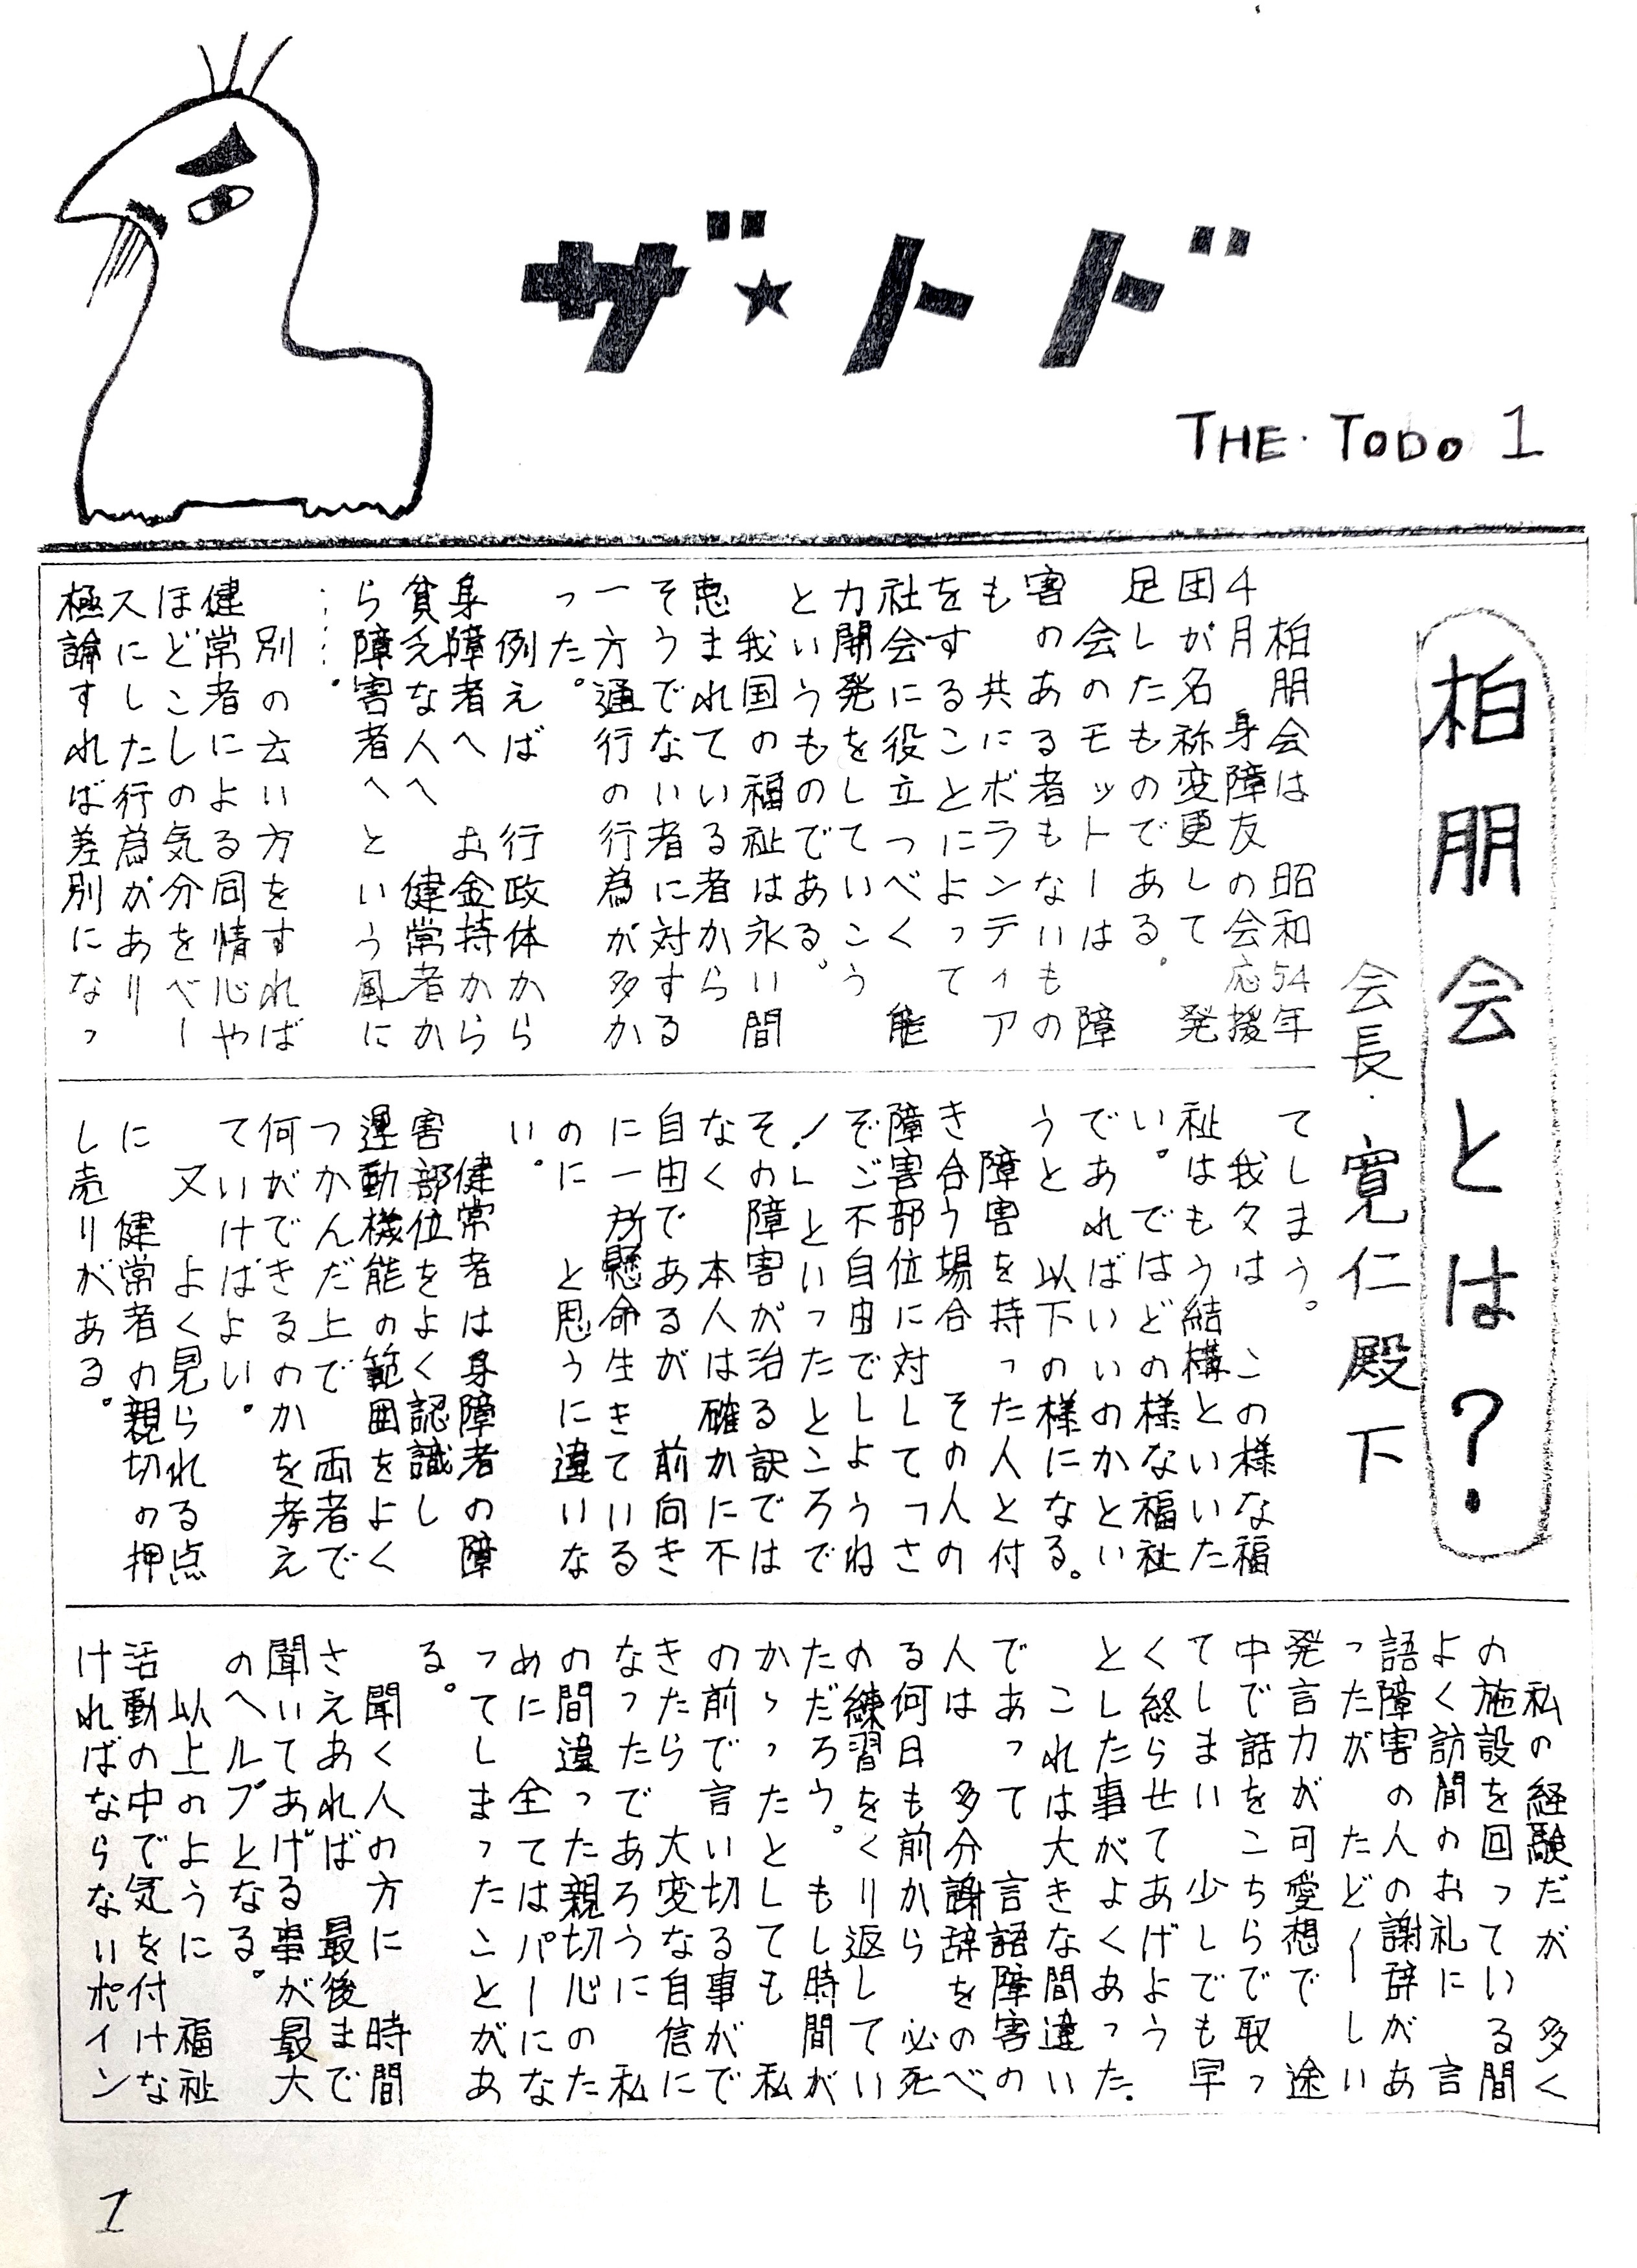 ザ★トド
THE・TODO 1
柏朋会とは?
会長・寛仁殿下
柏朋会は 昭和54年
4月 身障友の会応援
団が名称変更して 発
足したものである。
会のモットーは 障
害のある者もないもの
も 共にボランティア
をすることによって
社会に役立つべく 能
力開発をしていこう
というものである。
我国の福祉は永い間
恵まれている者から
そうでない者に対する
一方通行の行為が多か
った。
例えば 行政体から
身障者へ お金持から
貧乏な人へ 健常者か
ら障害者へという風に
……。
別の云い方をすれば
健常者による同情心や
ほどこしの気分をベー
スにした行為があり
極論すれば差別になっ
てしまう。
我々は この様な福
祉はもう結構といいた
い。ではどの様な福祉
であればいいのかとい
うと 以下の様になる。
障害を持った人と付
き合う場合 その人の
障害部位に対してつさ
ぞご不自由でしようね
!」といったところで
その障害が治る訳では
なく 本人は確かに不
自由であるが 前向き
に一所懸命生きている
のに と思うに違いな
い。
健常者は身障者の障
害部位をよく認識し
運動機能の範囲をよく
つかんだ上で 両者で
何ができるのかを考え
ていけばよい。
又 よく見られる点
に 健常者の親切の押
し売りがある。
私の経験だが 多く
の施設を回っている間
よく訪間のお礼に 言
語障害の人の謝辞があ
ったが たどーしい
発言力が可愛想で 途
中で話をこちらで取っ
てしまい 少しでも早
く終らせてあげよう
とした事がよくあった.
これは大きな間違い
であって 言語障害の
人は 多分謝辞をのべ
る何日も前から 必死
の練習をくり返してい
ただろう。もし時間が
かゝったとしても 私
の前で言い切る事がで
きたら 大変な自信に
なったであろうに 私
の間違った親切心のた
めに 全てはパーにな
ってしまったことがあ
る。
聞く人の方に 時間
さえあれば 最後まで
聞いてあげる事が最大
のヘルプとなる。
以上のように 福祉
活動の中で気を付けな
ければならないポイン
1